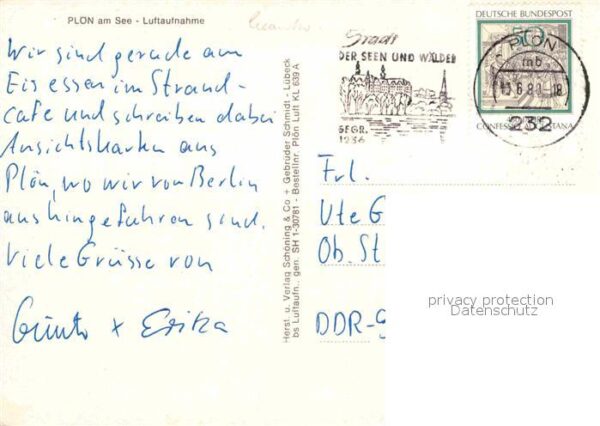 PLÖN am See - Luftaufnahme
Wir sind gerade am
Eis essen im Strand-
cafe und schreiben dabei
Ansichtskarten aus
Plön, wo wir von Berlin
aus hingefahren sind.
Viele Grüsse von
Günto + Erika
Herst. u. Verlag Schöning & Co + Gebrüder Schmidt - Lübeck
bs Luftaufn. gen. SH 1-30781 - Bestellnr. Plön Luft KL 639 A
Stadt
DER SEEN UND WÄLDER
GEGR.
1236
DEUTSCHE BUNDESPOST
50
PLÖN
mb
232
CONFESSIO AUGUSTANA
Frl.
Ute G
Ob. St
DDR-9
privacy protection
Datenschutz